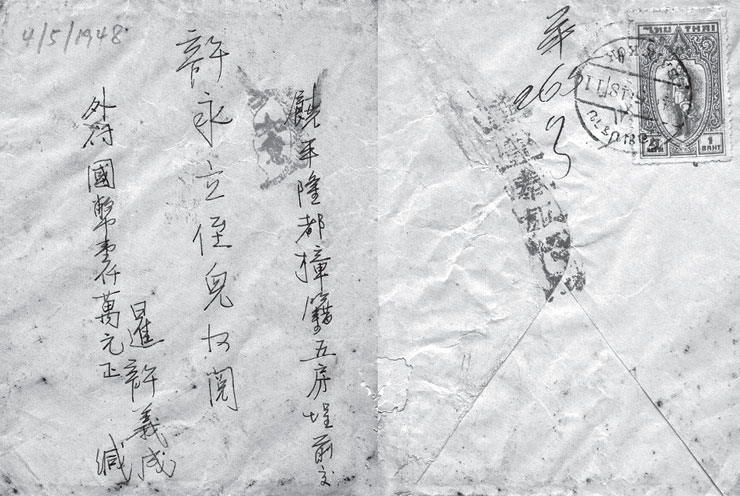 4/5/1948
饒平隆都樟籍五房埕前交
許永立侄兒收閱
外符國幣壹仟萬元正
暹許義成緘
華
ไทย THAI
1
BAHT